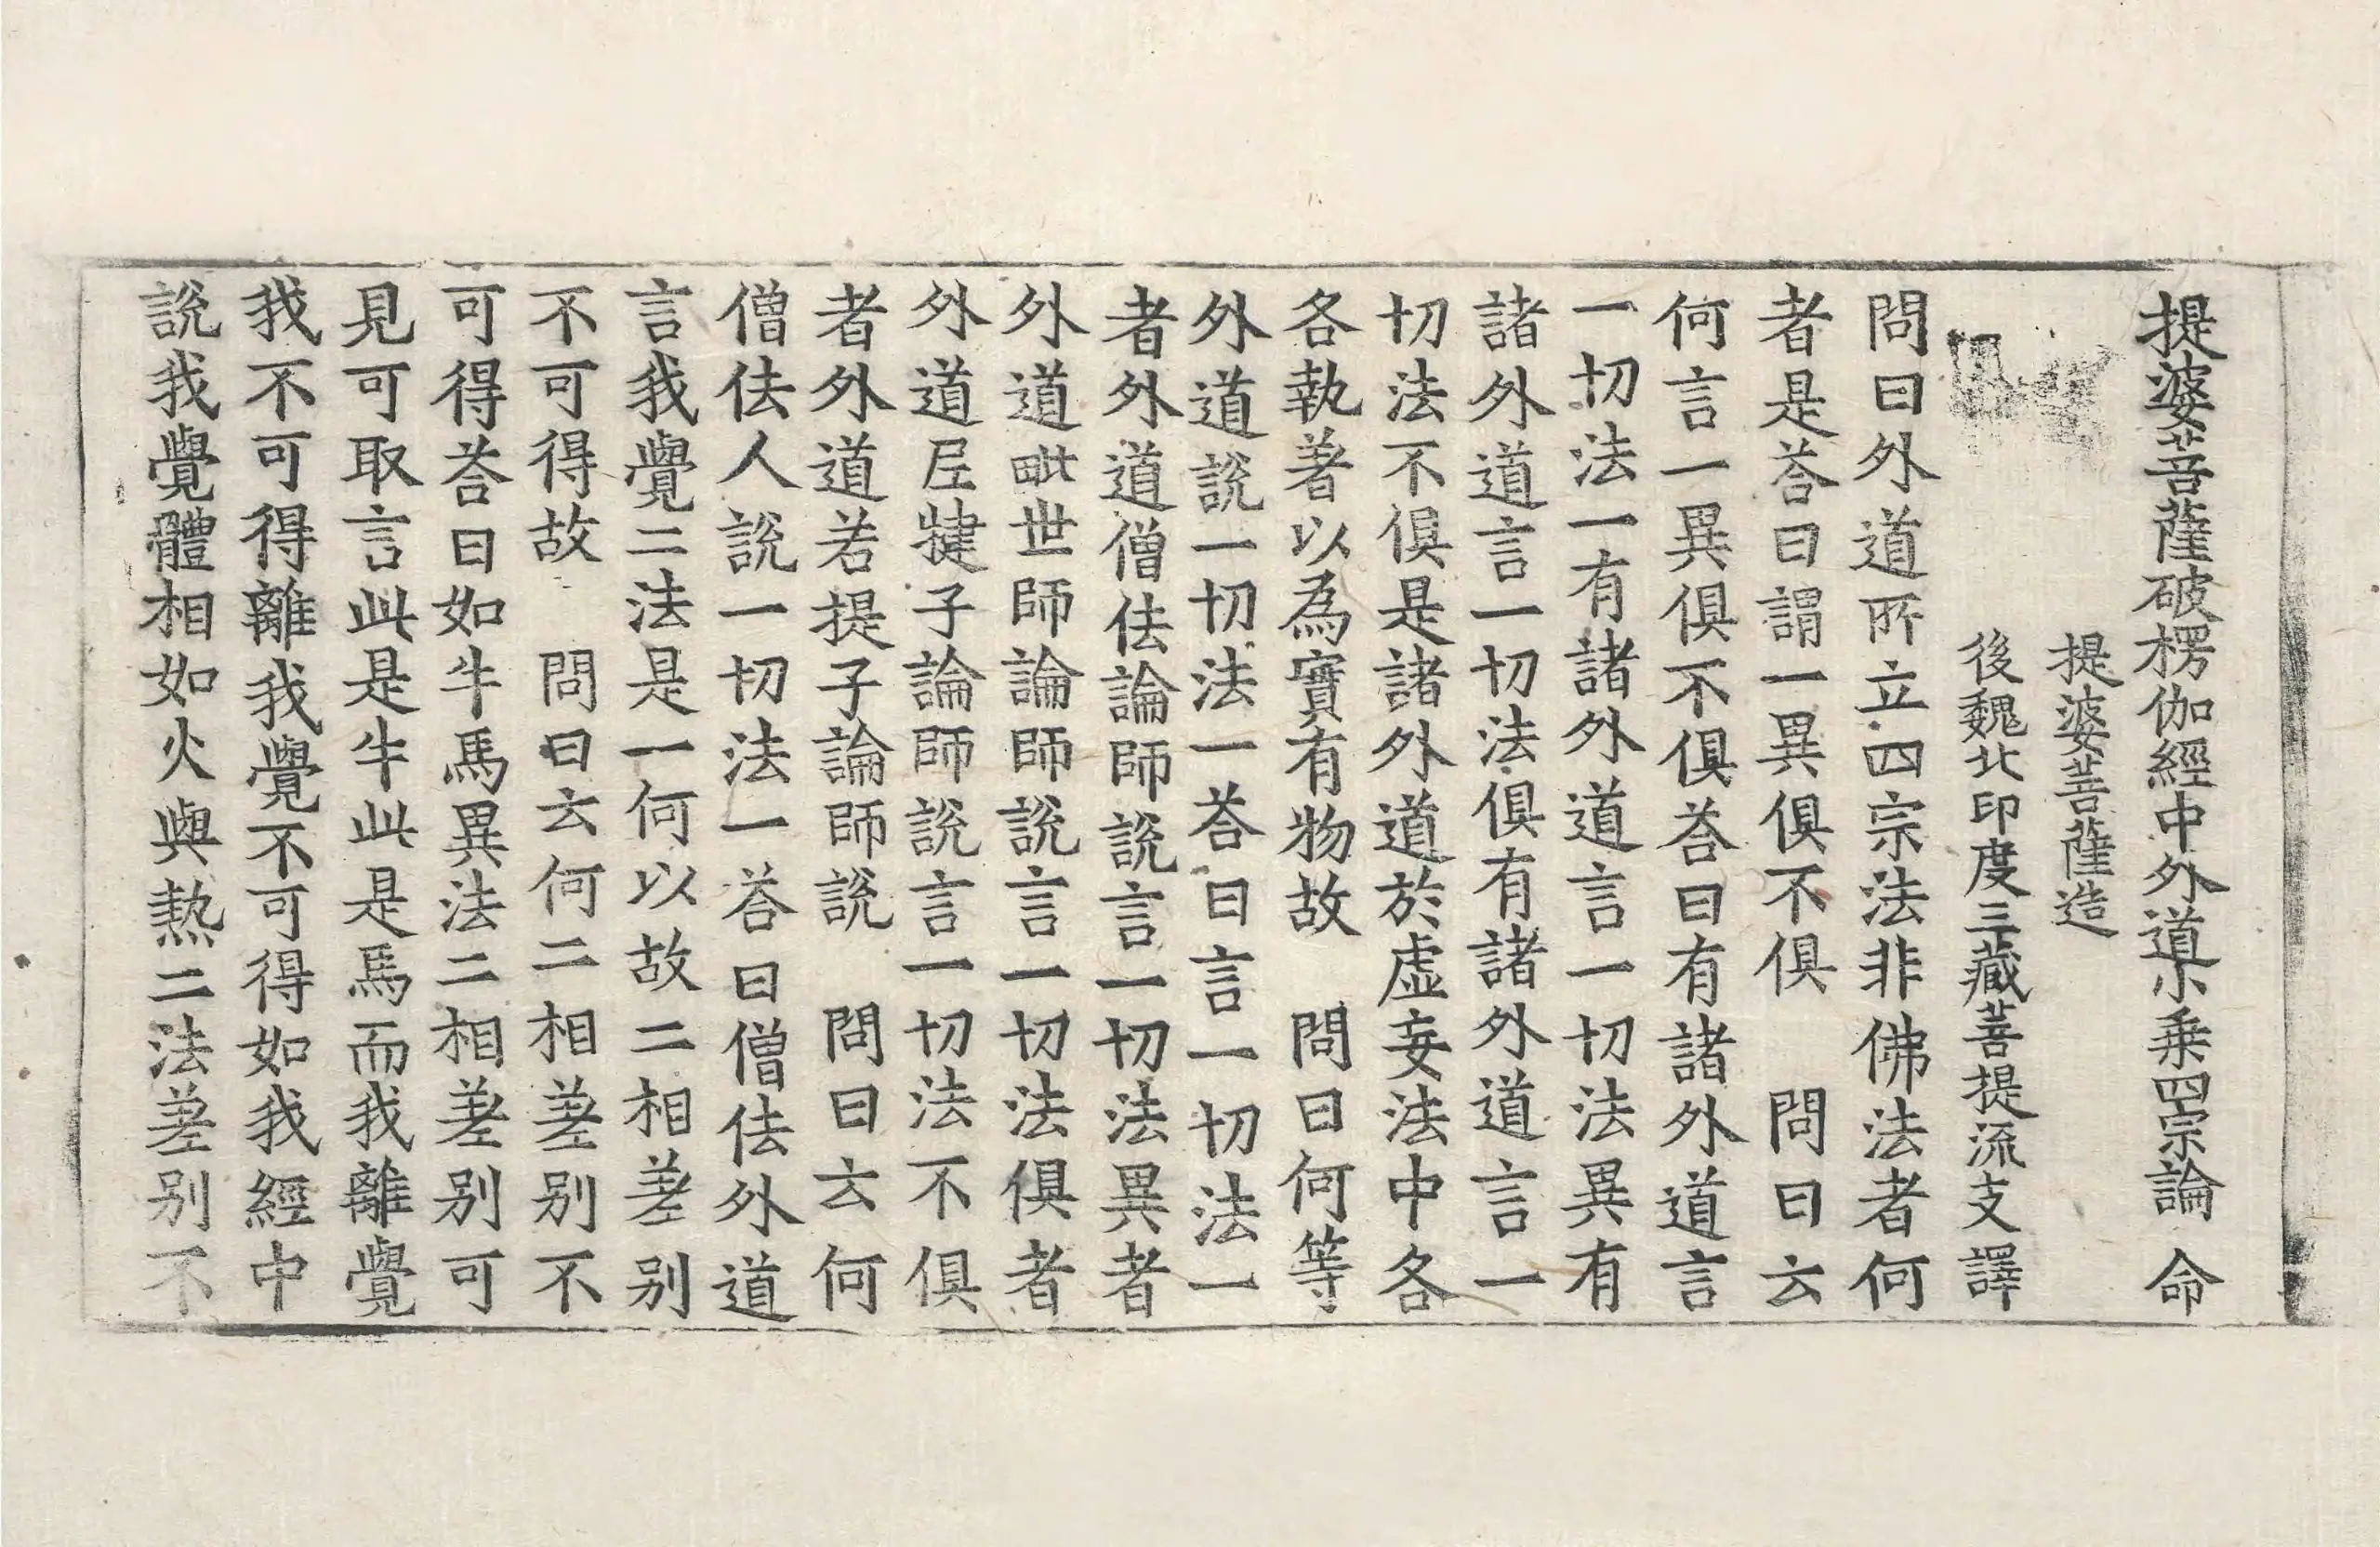 提婆菩薩破楞伽經中外道小乗四宗論 命
提婆菩薩造
後魏北印度三藏菩提流支譯
問曰外道所立四宗法非佛法者何
者是荅曰謂一異俱不俱 問曰云
何言一異俱不俱荅曰有諸外道言
一切法一有諸外道言一切法異有
諸外道言一切法俱有諸外道言一
切法不俱是諸外道於虛妄法中各
各執著以為實有物故 問曰何等
外道說一切法一荅曰言一切法一
者外道僧佉論師說言一切法異者
外道毗世師論師說言一切法俱者
外道尼揵子論師說言一切法不俱
者外道若提子論師說 問曰云何
僧佉人說一切法一荅曰僧佉外道
言我覺二法是一何以故二相差别
不可得故 問曰云何二相差别不
可得荅曰如牛馬異法二相差别可
見可取言此是牛此是馬而我離覺
我不可得離我覺不可得如我經中
說我覺體相如火與熱二法差别不